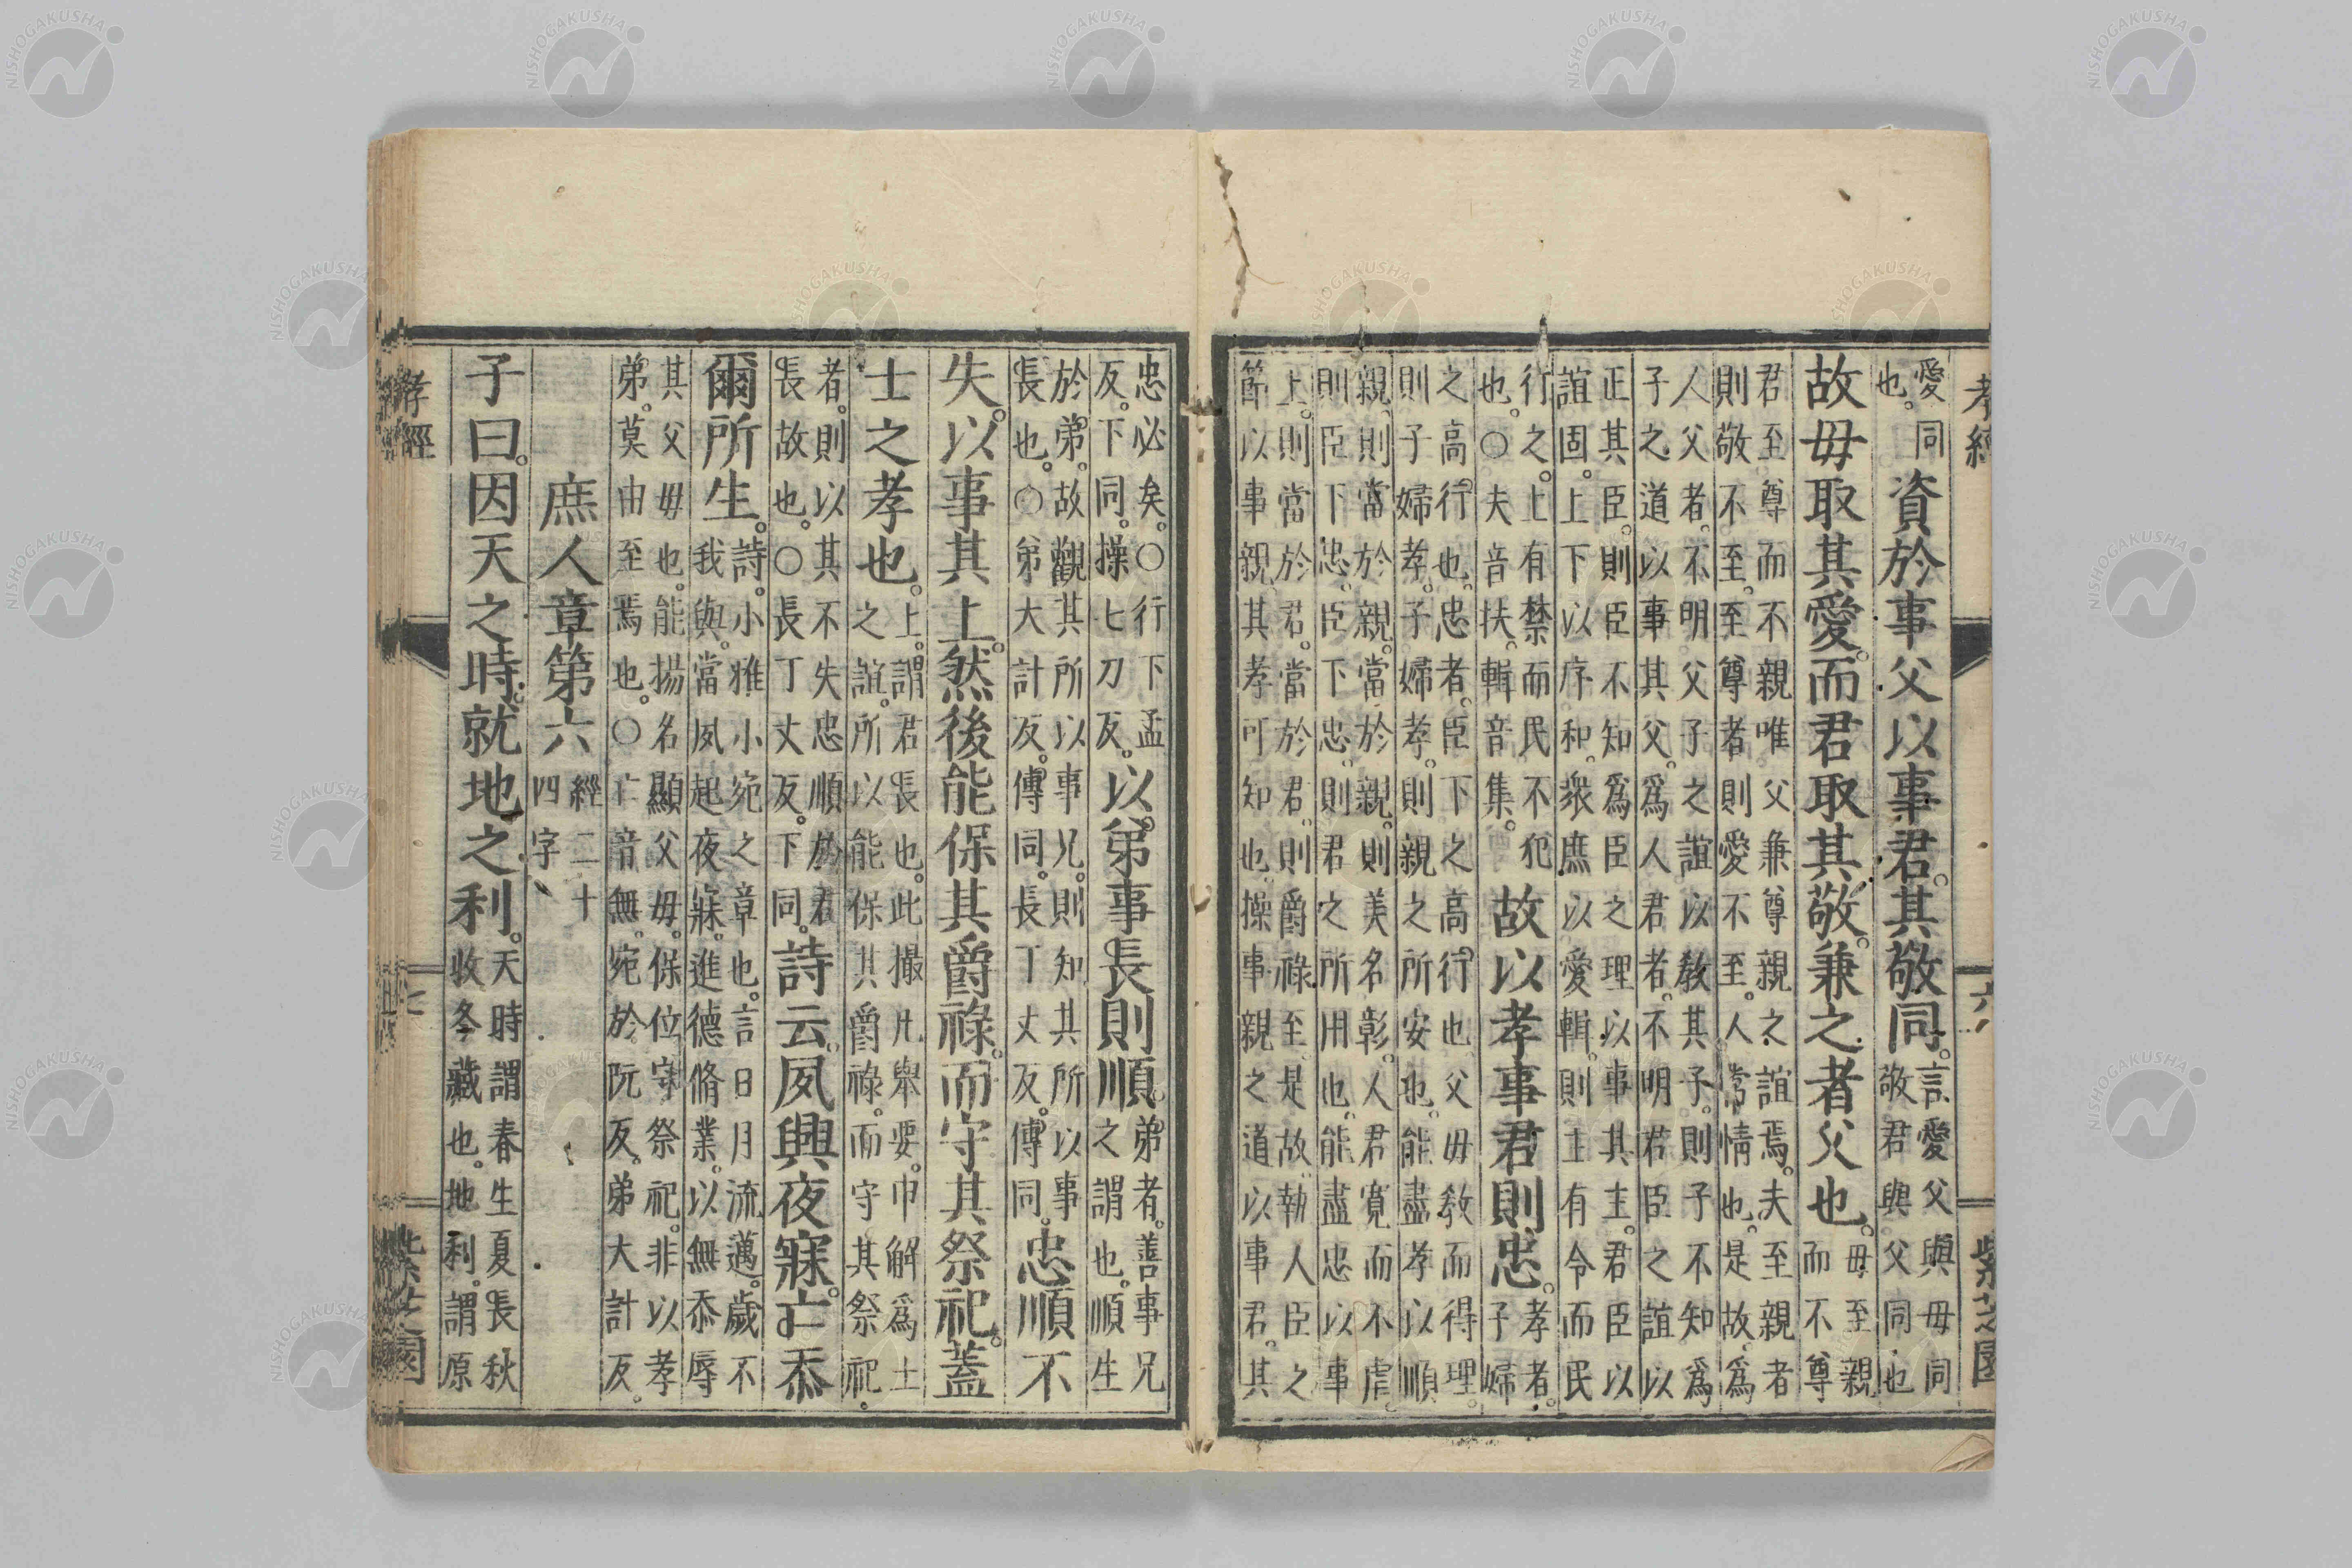 孝經 六 紫芝園
愛同也。資於事父以事君。其敬同。言愛父與毋同敬君與父同也
故毋取其愛。而君取其敬。兼之者父也。毋至親而不尊
君至尊而不親唯父兼尊親之誼焉。夫至親者
則敬不至。至尊者則愛不至。人常情也。是故爲
人父者。不明父子之誼以敎其子。則子不知爲
子之道以事其父。爲人君者。不明君臣之誼以
正其臣。則臣不知爲臣之理以事其主。君臣以
誼固。上下以序和。衆庶以愛輯。則主有令而民
行之。上有禁而民不犯也。○夫音扶。輯音集。故以孝事君則忠。孝者。子婦
之高行也。忠者。臣下之高行也。父毋敎而得理。
則子婦孝。子婦孝。則親之所安也。能盡孝以順
親。則當於親。當於親。則美名彰。人君寬而不虐。
則臣下忠。臣下忠。則君之所用也。能盡忠以事
上。則當於君。當於君。則爵祿至。是故。執人臣之
節以事親。其孝可知也。操事親之道以事君。其
忠必矣。○行下孟反。下同。操七刀反。以弟事長則順。弟者。善事兄之謂也。順生
於弟。故觀其所以事兄。則知其所以事長也。○弟大計反。傳同。長丁丈反。傳同。忠順不
失。以事其上。然後能保其爵祿。而守其祭祀。蓋
士之孝也。上。謂君長也。此撮凡舉要。巾解爲士之誼。所以能保其爵祿。而守其祭祀。
者。則以其不失忠順於君長故也。○長丁丈反。下同。詩云。夙興夜寐。亡忝
爾所生。詩。小雅小宛之章也。言日月流邁。歲不我與。當夙起夜寐。進德脩業。以無忝辱
其父毋也。能揚名顯父毋。保位守祭祀。非以孝
弟。莫由至焉也。○亡音無。宛於阮反。弟大計反。
庶人章第六 經二十四字
子曰。因天之時。就地之利。天時謂春生夏長秋收冬藏也。地利。謂原
孝經 七 紫芝園